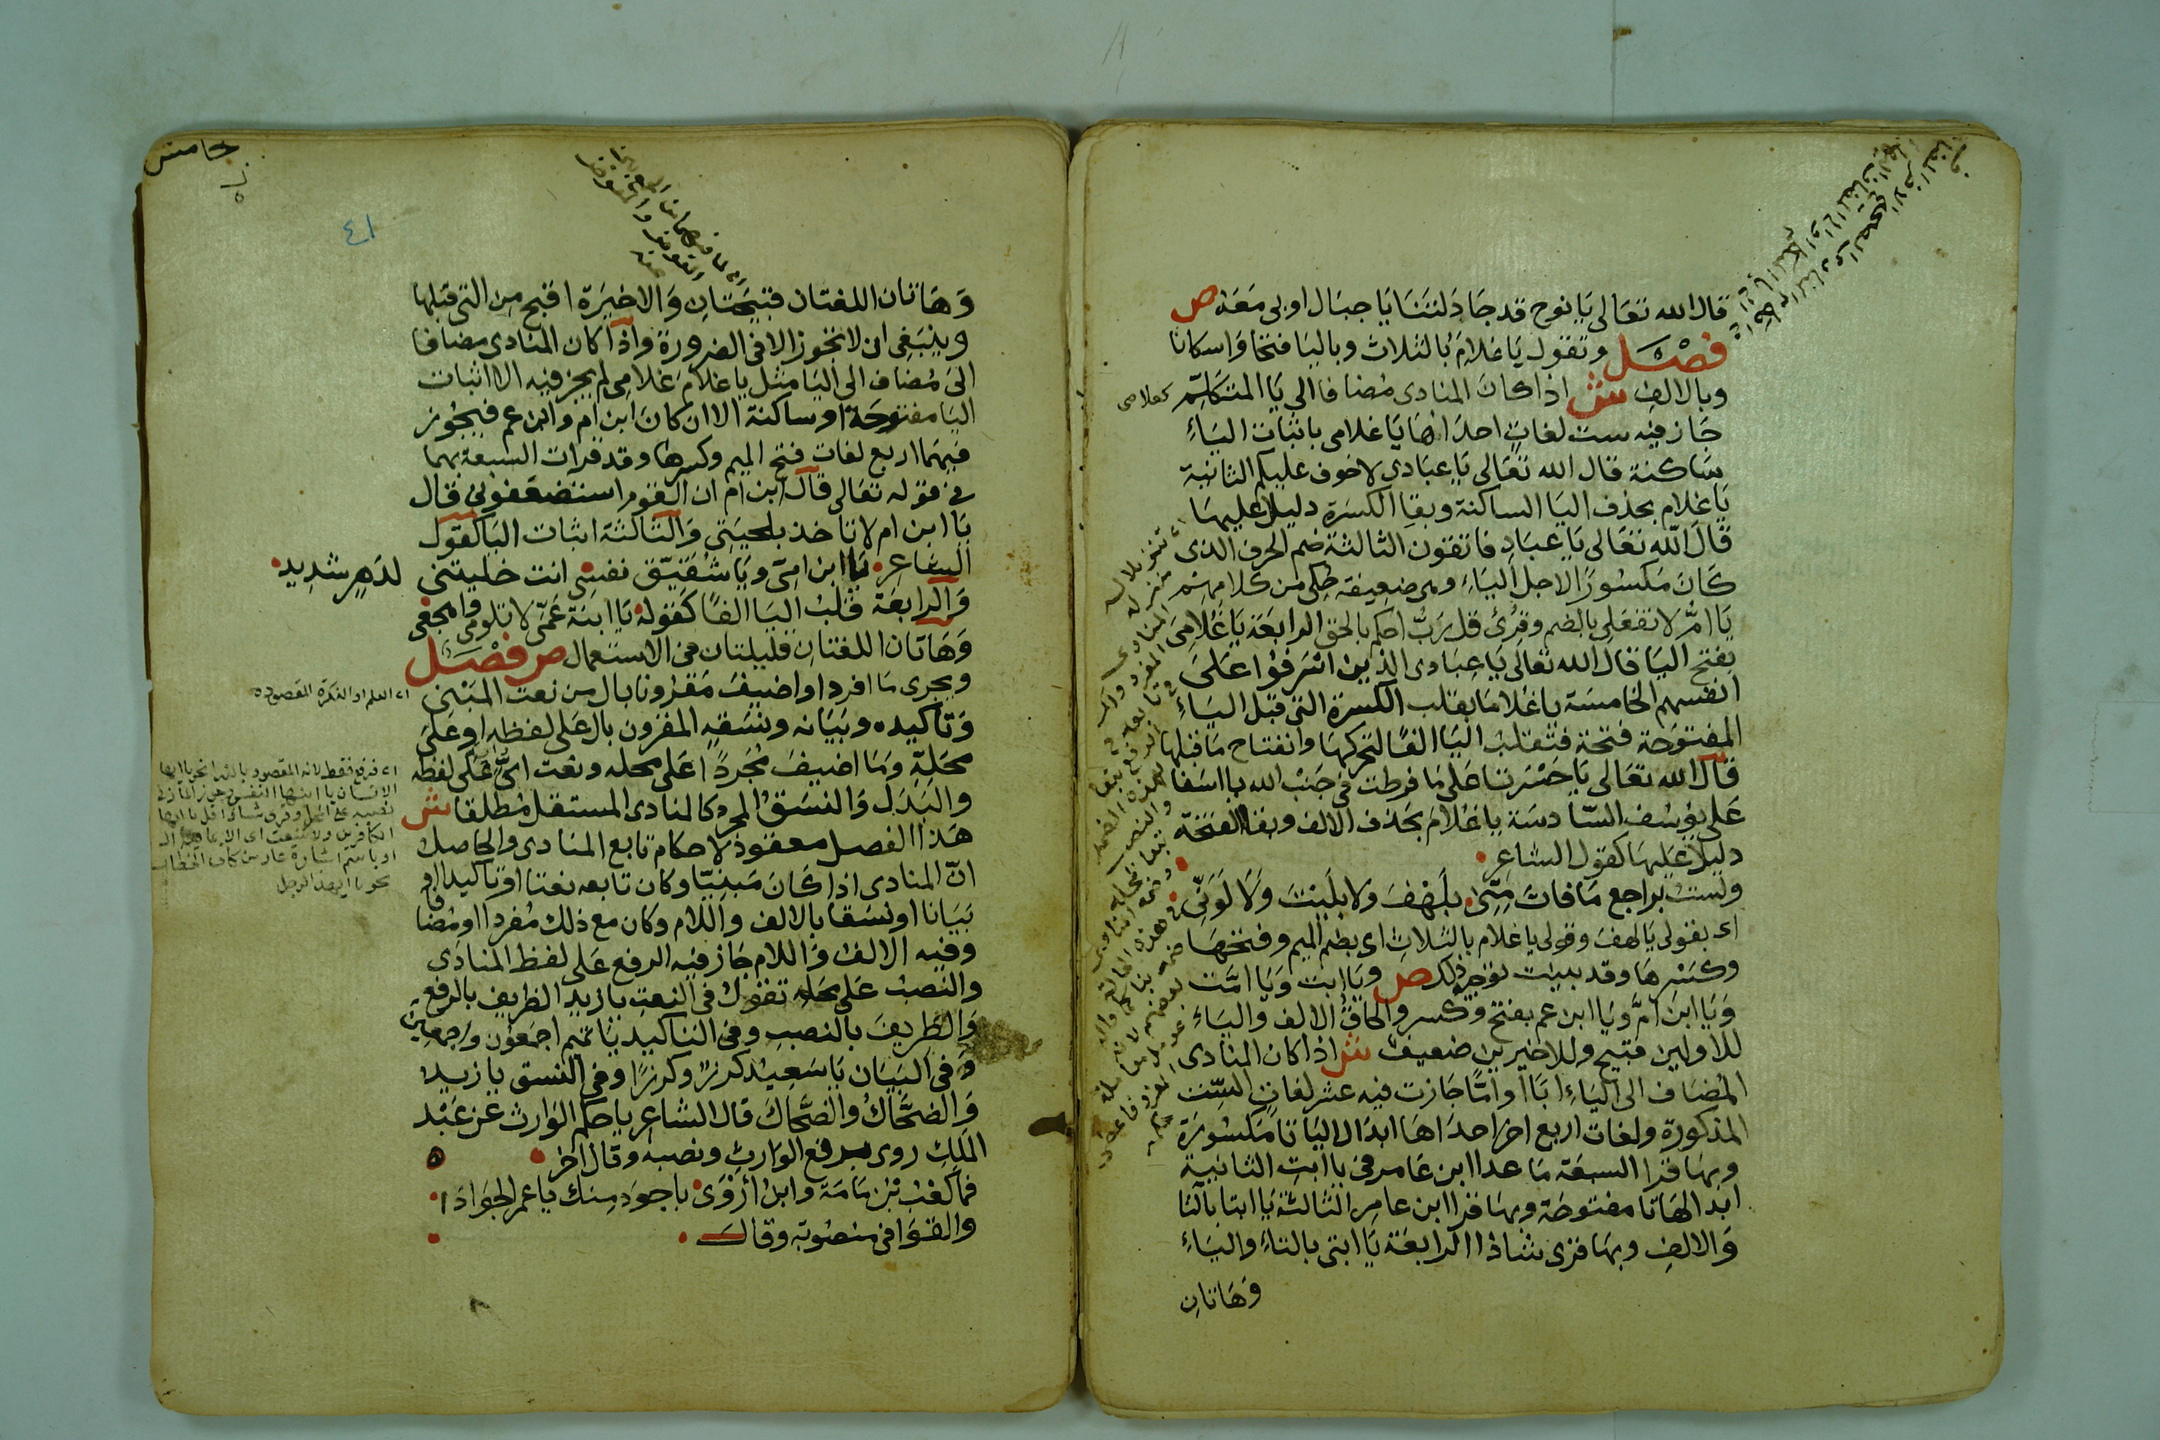 قال الله تعالى يا نوح قد جادلتنا يا جبال اوبى معه ص
فصل وتقول يا غلام بالثلاث وباليا فتحا واسكانا
وبالالف ش اذا كان المنادى مضافا الى يا المتكلم كغلامى
جاز فيه ست لغات احداها يا غلامى باثبات الياء
ساكنة قال الله تعالى يا عبادى لا خوف عليكم الثانية
يا غلام بحذف اليا الساكنة وبقا الكسرة دليلا عليها
قال الله تعالى يا عباد فاتقون الثالثة ضم الحرف الذى
كان مكسورا لاجل الياء وهى ضعيفة حكى من كلامهم
يا ام لا تفعلى بالضم وقرئ قل رب احكم بالحق الرابعة يا غلامى
بفتح اليا قال الله تعالى يا عبادى الذين اسرفوا على
انفسهم الخامسة يا غلاما بقلب الكسرة التى قبل الياء
المفتوحة فتحة فتقلب اليا الفا لتحركها وانفتاح ما قبلها
قال الله تعالى يا حسرتا على ما فرطت فى جنب الله يا اسفا
على يوسف السادسة يا غلام بحذف الالف وبقا الفتحة
دليلا عليها كقول الشاعر
ولست براجع ما فات منى بلهف ولا بليت ولا لوانى
اى بقولى يا لهف وقولى يا غلام بالثلاث اى بضم الميم وفتحها
وكسرها وقد بينت توجيه ذلك ص ويا ابت ويا امت
ويا ابن ام ويا ابن عم بفتح وكسر والحاق الالف والياء
للاولين قبيح وللاخيرين ضعيف ش اذا كان المنادى
المضاف الى الياء ابا او اما جازت فيه عشر لغات الست
المذكورة ولغات اربع اخر احداها ابدال اليا تا مكسورة
وبها قرا السبعة ما عدا ابن عامر فى يا ابت الثانية
ابدالها تا مفتوحة وبها قرا ابن عامر الثالثة يا ابتا بالتا
والالف وبها قرى شاذا الرابعة يا ابتى بالتاء والياء
وهاتان
خامس
٤١
وهاتان اللغتان قبيحتان والاخيرة اقبح من التى قبلها
وينبغى ان لا تجوز الا فى الضرورة واذا كان المنادى مضافا
الى مضاف الى اليا مثل يا غلام غلامى لم يجز فيه الا اثبات
اليا مفتوحة او ساكنة الا ان كان ابن ام وابن عم فيجوز
فيهما اربع لغات فتح الميم وكسرها وقد قرات السبعة بهما
فى قوله تعالى قال ابن ام ان القوم استضعفونى قال
يا ابن ام لا تاخذ بلحيتى والثالثة اثبات اليا كقول
الشاعر يا ابن امى ويا شقيق نفسى انت خليتنى لدهر شديد
والرابعة قلب اليا الفا كقوله يا ابنة عمى لا تلومى واهجعى
وهاتان اللغتان قليلتان فى الاستعمال ص فصل
ويجرى ما افرد او اضيف مقرونا بال من نعت المبنى
اى العلم او النكرة المقصودة
وتاكيده وبيانه ونسقه المقرون بال على لفظه او على
محله وما اضيف مجردا على محله ونعت اى على لفظه
والبدل والنسق المجرد كالمنادى المستقل مطلقا ش
هذا الفصل معقود لاحكام تابع المنادى والحاصل
ان المنادى اذا كان مبنيا وكان تابعه نعتا او تاكيدا او
بيانا او نسقا بالالف واللام وكان مع ذلك مفردا او مضافا
وفيه الالف واللام جاز فيه الرفع على لفظ المنادى
والنصب على محله تقول فى النعت يا زيد الظريف بالرفع
والظريف بالنصب وفى التاكيد يا تميم اجمعون واجمعين
وفى البيان يا سعيد كرز وكرزا وفى النسق يا زيد
والضحاك والضحاك قال الشاعر يا حكم الوارث عن عبد
الملك روى برفع الوارث ونصبه وقال اخر
فما كعب بن مامة وابن اروى باجود منك يا عمر الجوادا
والقوافى منصوبة وقال